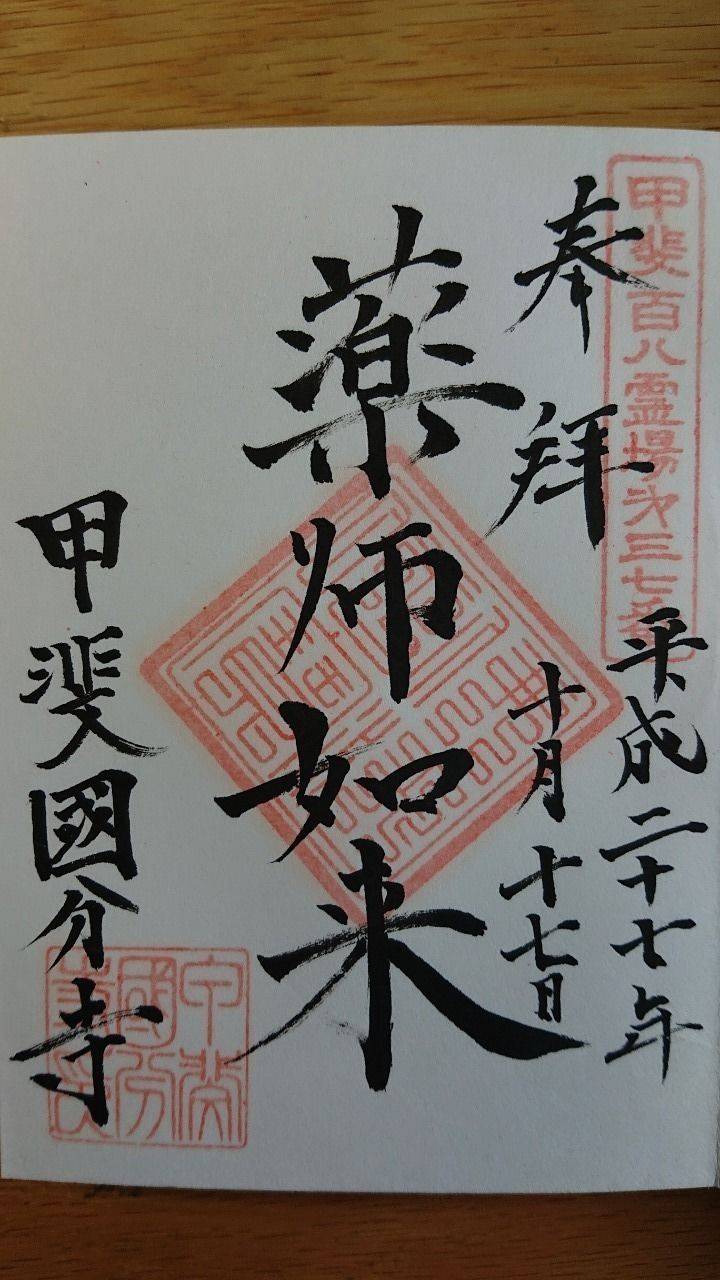 甲斐百八霊場第三七番
奉拝
平成二十七年
十月十七日
薬師如来
甲斐國分寺